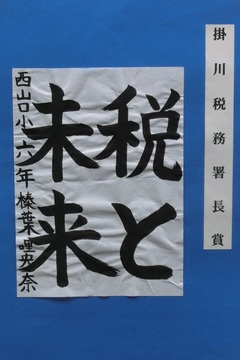 掛川税務署長賞
税と
未来
西山口小六年榛葉唖央奈